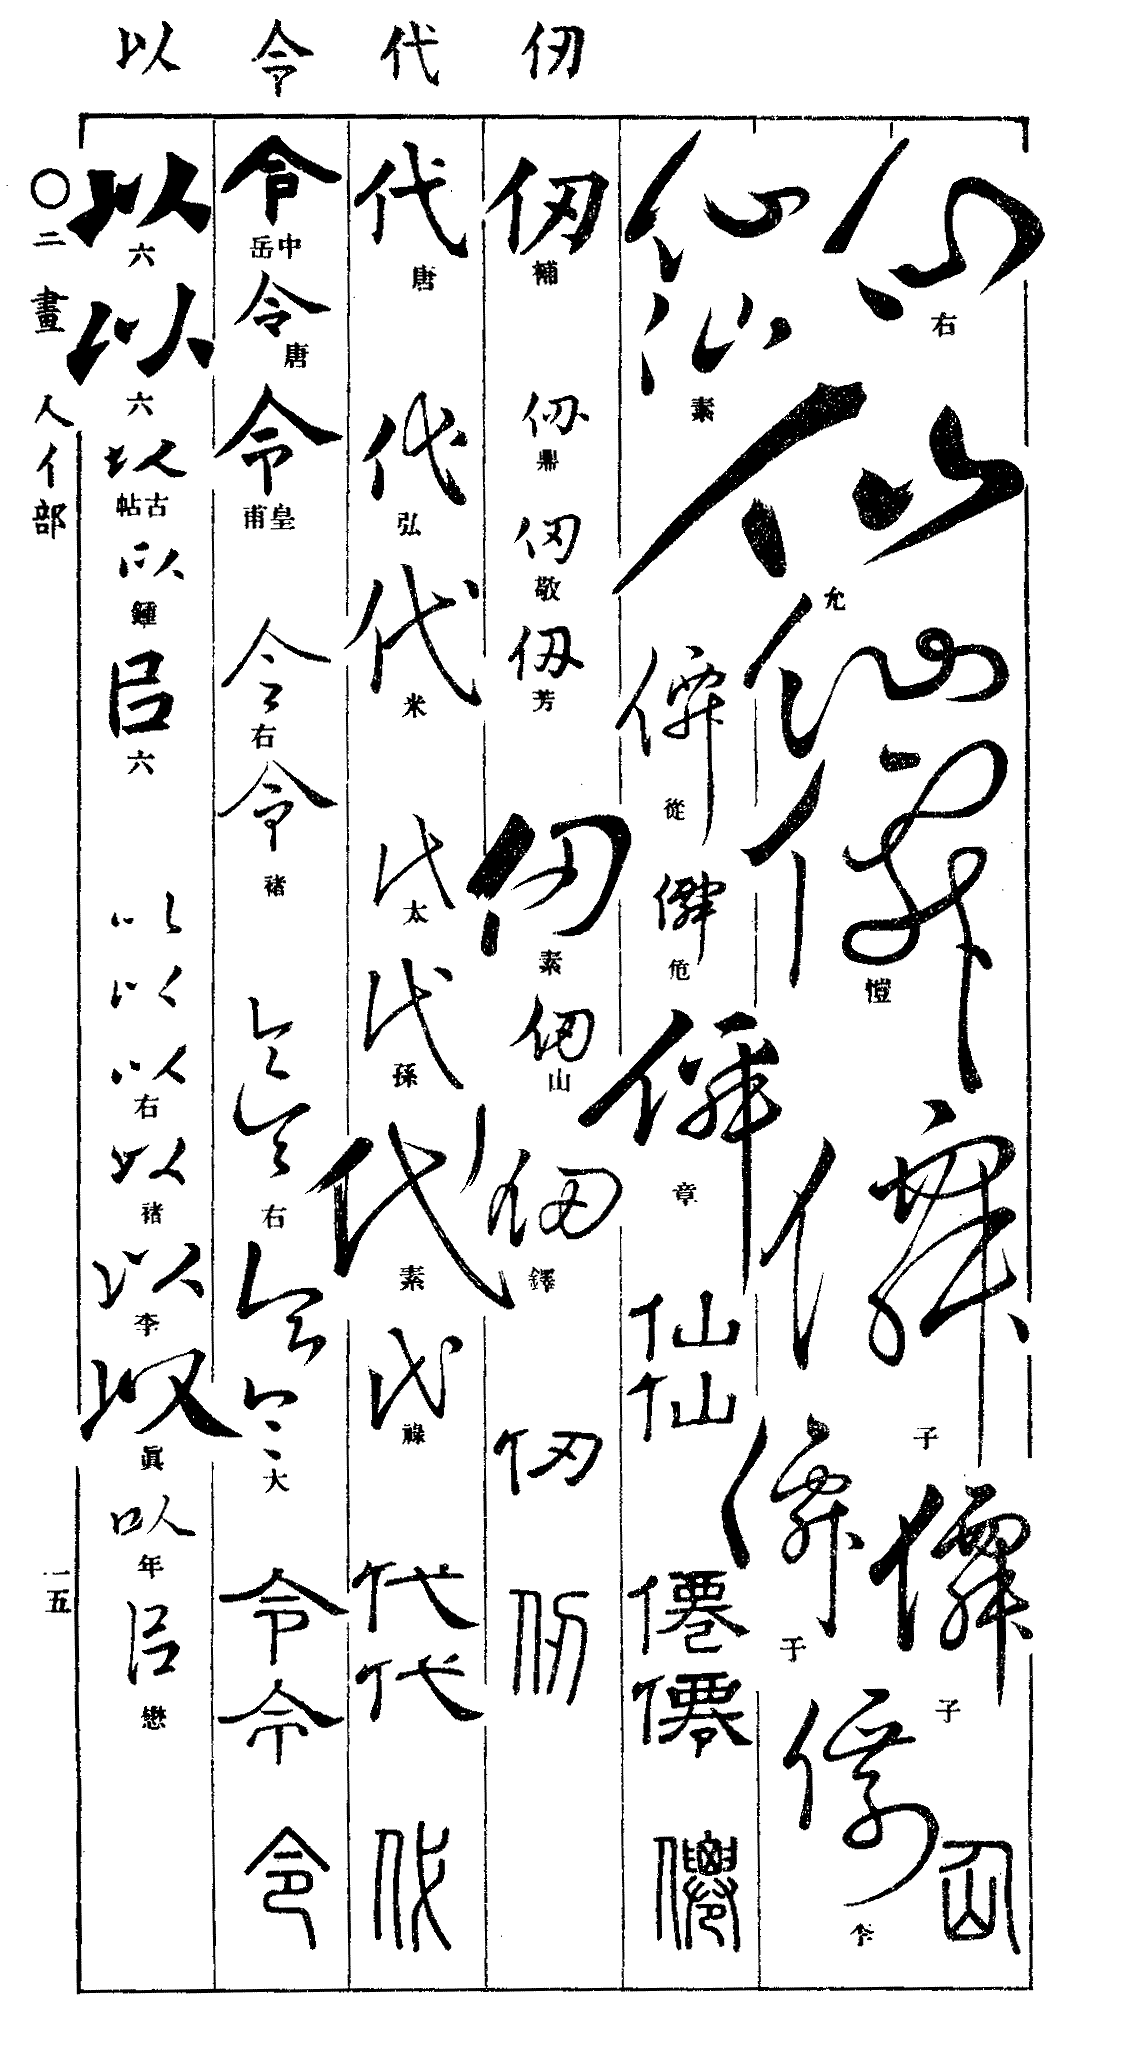 仞 代 令 以
仙 右 仙 允 仙 僊 愷 僊 子 僊 子 仚
僊 于 僊 李
仙 仙 素 僊 從 僊 危 僊 章 仙 仙 僊 僊 僊
仞 補 仞 鼎 仞 敬 仞 芳 仞 素 仞 山 仞 鐸 仞 仞
代 唐 代 弘 代 米 代 太 代 孫 代 素 代 祿 代 代 代
令 中岳 令 唐 令 皇甫 令 右 令 褚 令 令 右 令 令 大 令 令 令
以 六 以 六 以 古帖 以 鍾 㠯 六 以 以 以 右 以 褚 以 李 以 眞 以 年 㠯 懋
〇二畫 人亻部 一五